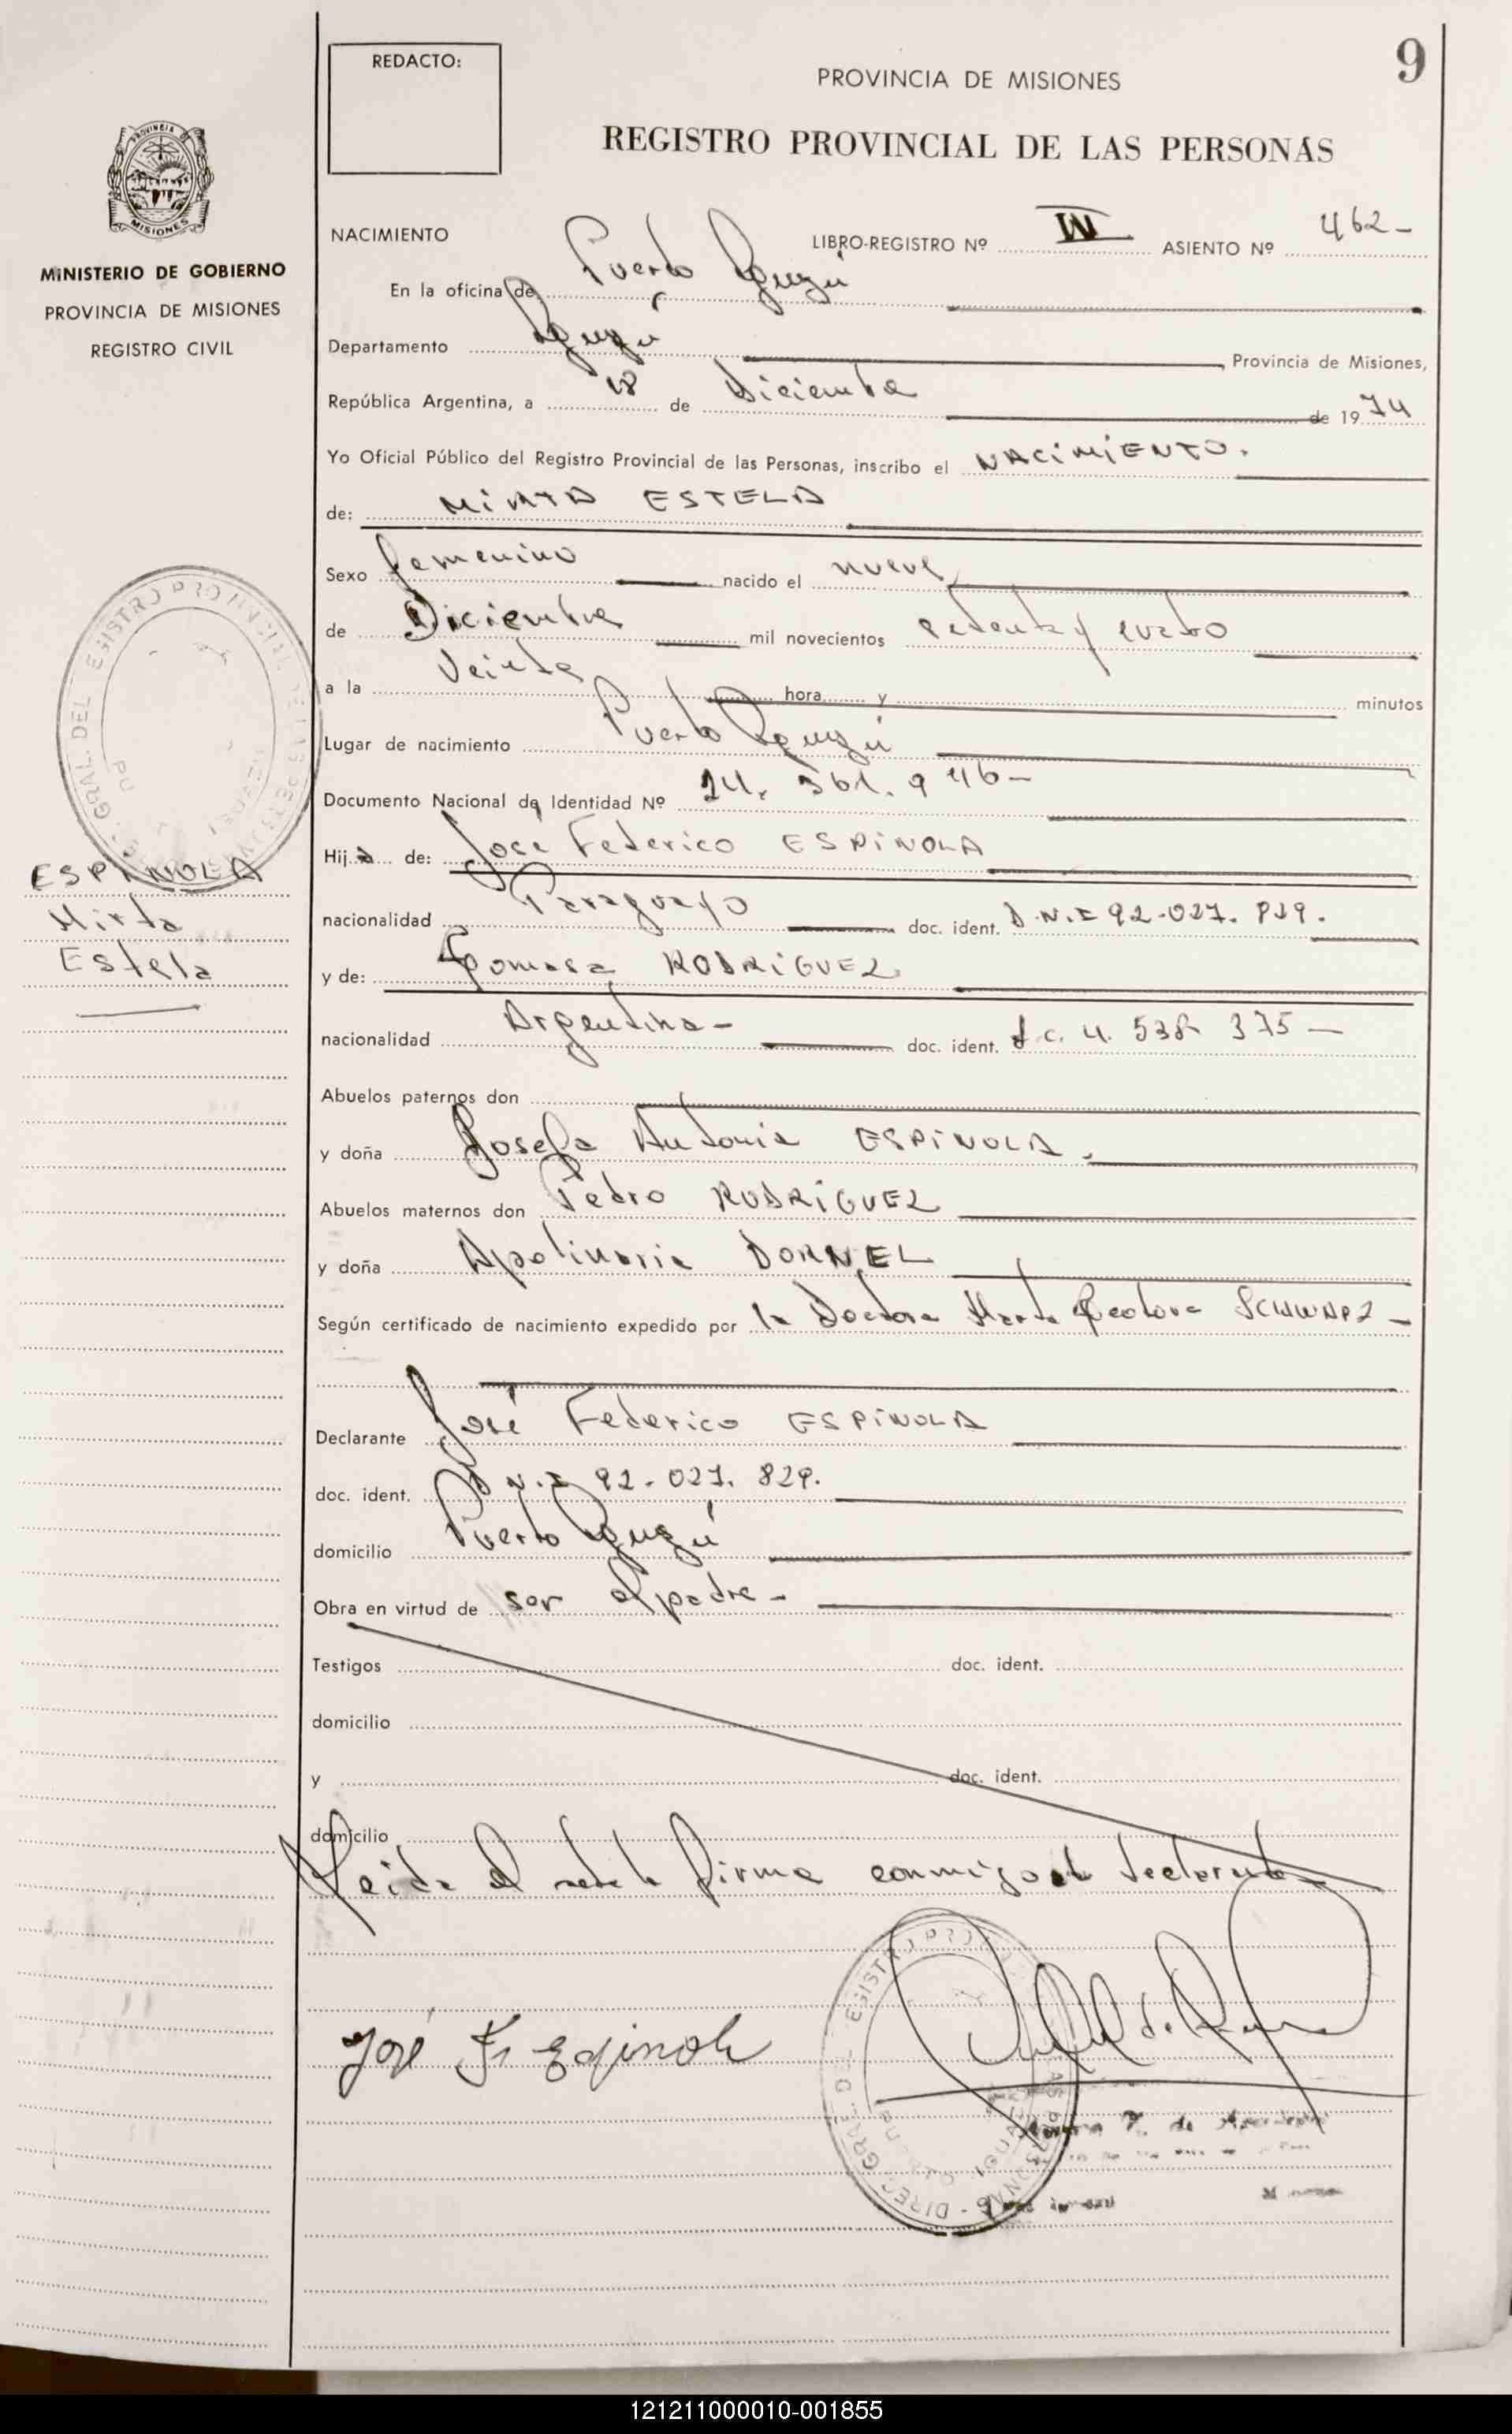 9
REDACTO:
PROVINCIA DE MISIONES
REGISTRO PROVINCIAL DE LAS PERSONAS
PROVINCIA
MISIONES
MINISTERIO DE GOBIERNO
PROVINCIA DE MISIONES
REGISTRO CIVIL
NACIMIENTO LIBRO-REGISTRO Nº IV ASIENTO Nº 462-
En la oficina de Puerto Iguazú
Departamento Iguazú Provincia de Misiones,
República Argentina, a 18 de Diciembre de 1974
Yo Oficial Público del Registro Provincial de las Personas, inscribo el NACIMIENTO.
de: MIRTA ESTELA
Sexo femenino nacido el nueve
de Diciembre mil novecientos setenta y cuatro
a la Veinte hora y minutos
Lugar de nacimiento Puerto Iguazú
Documento Nacional de Identidad Nº 24. 361. 946-
Hija de: José Federico ESPINOLA
ESPINOLA
Mirta
Estela
nacionalidad Paraguayo doc. ident. D.N.I 92-027. 829.
y de: Tomasa RODRIGUEZ
nacionalidad Argentina- doc. ident. L.C. 4. 538 375-
Abuelos paternos don
y doña Josefa Antonia ESPINOLA.
Abuelos maternos don Pedro RODRIGUEZ
y doña Apolinaria DORNEL
Según certificado de nacimiento expedido por la Doctora Marta SCHWARZ-
Declarante José Federico ESPINOLA
doc. ident. D N.I 92-027. 829.
domicilio Puerto Iguazú
Obra en virtud de ser el padre-
Testigos doc. ident.
domicilio
y doc. ident.
domicilio
Leída el acta la firma conmigo el declarante
José F. Espinola
121211000010-001855